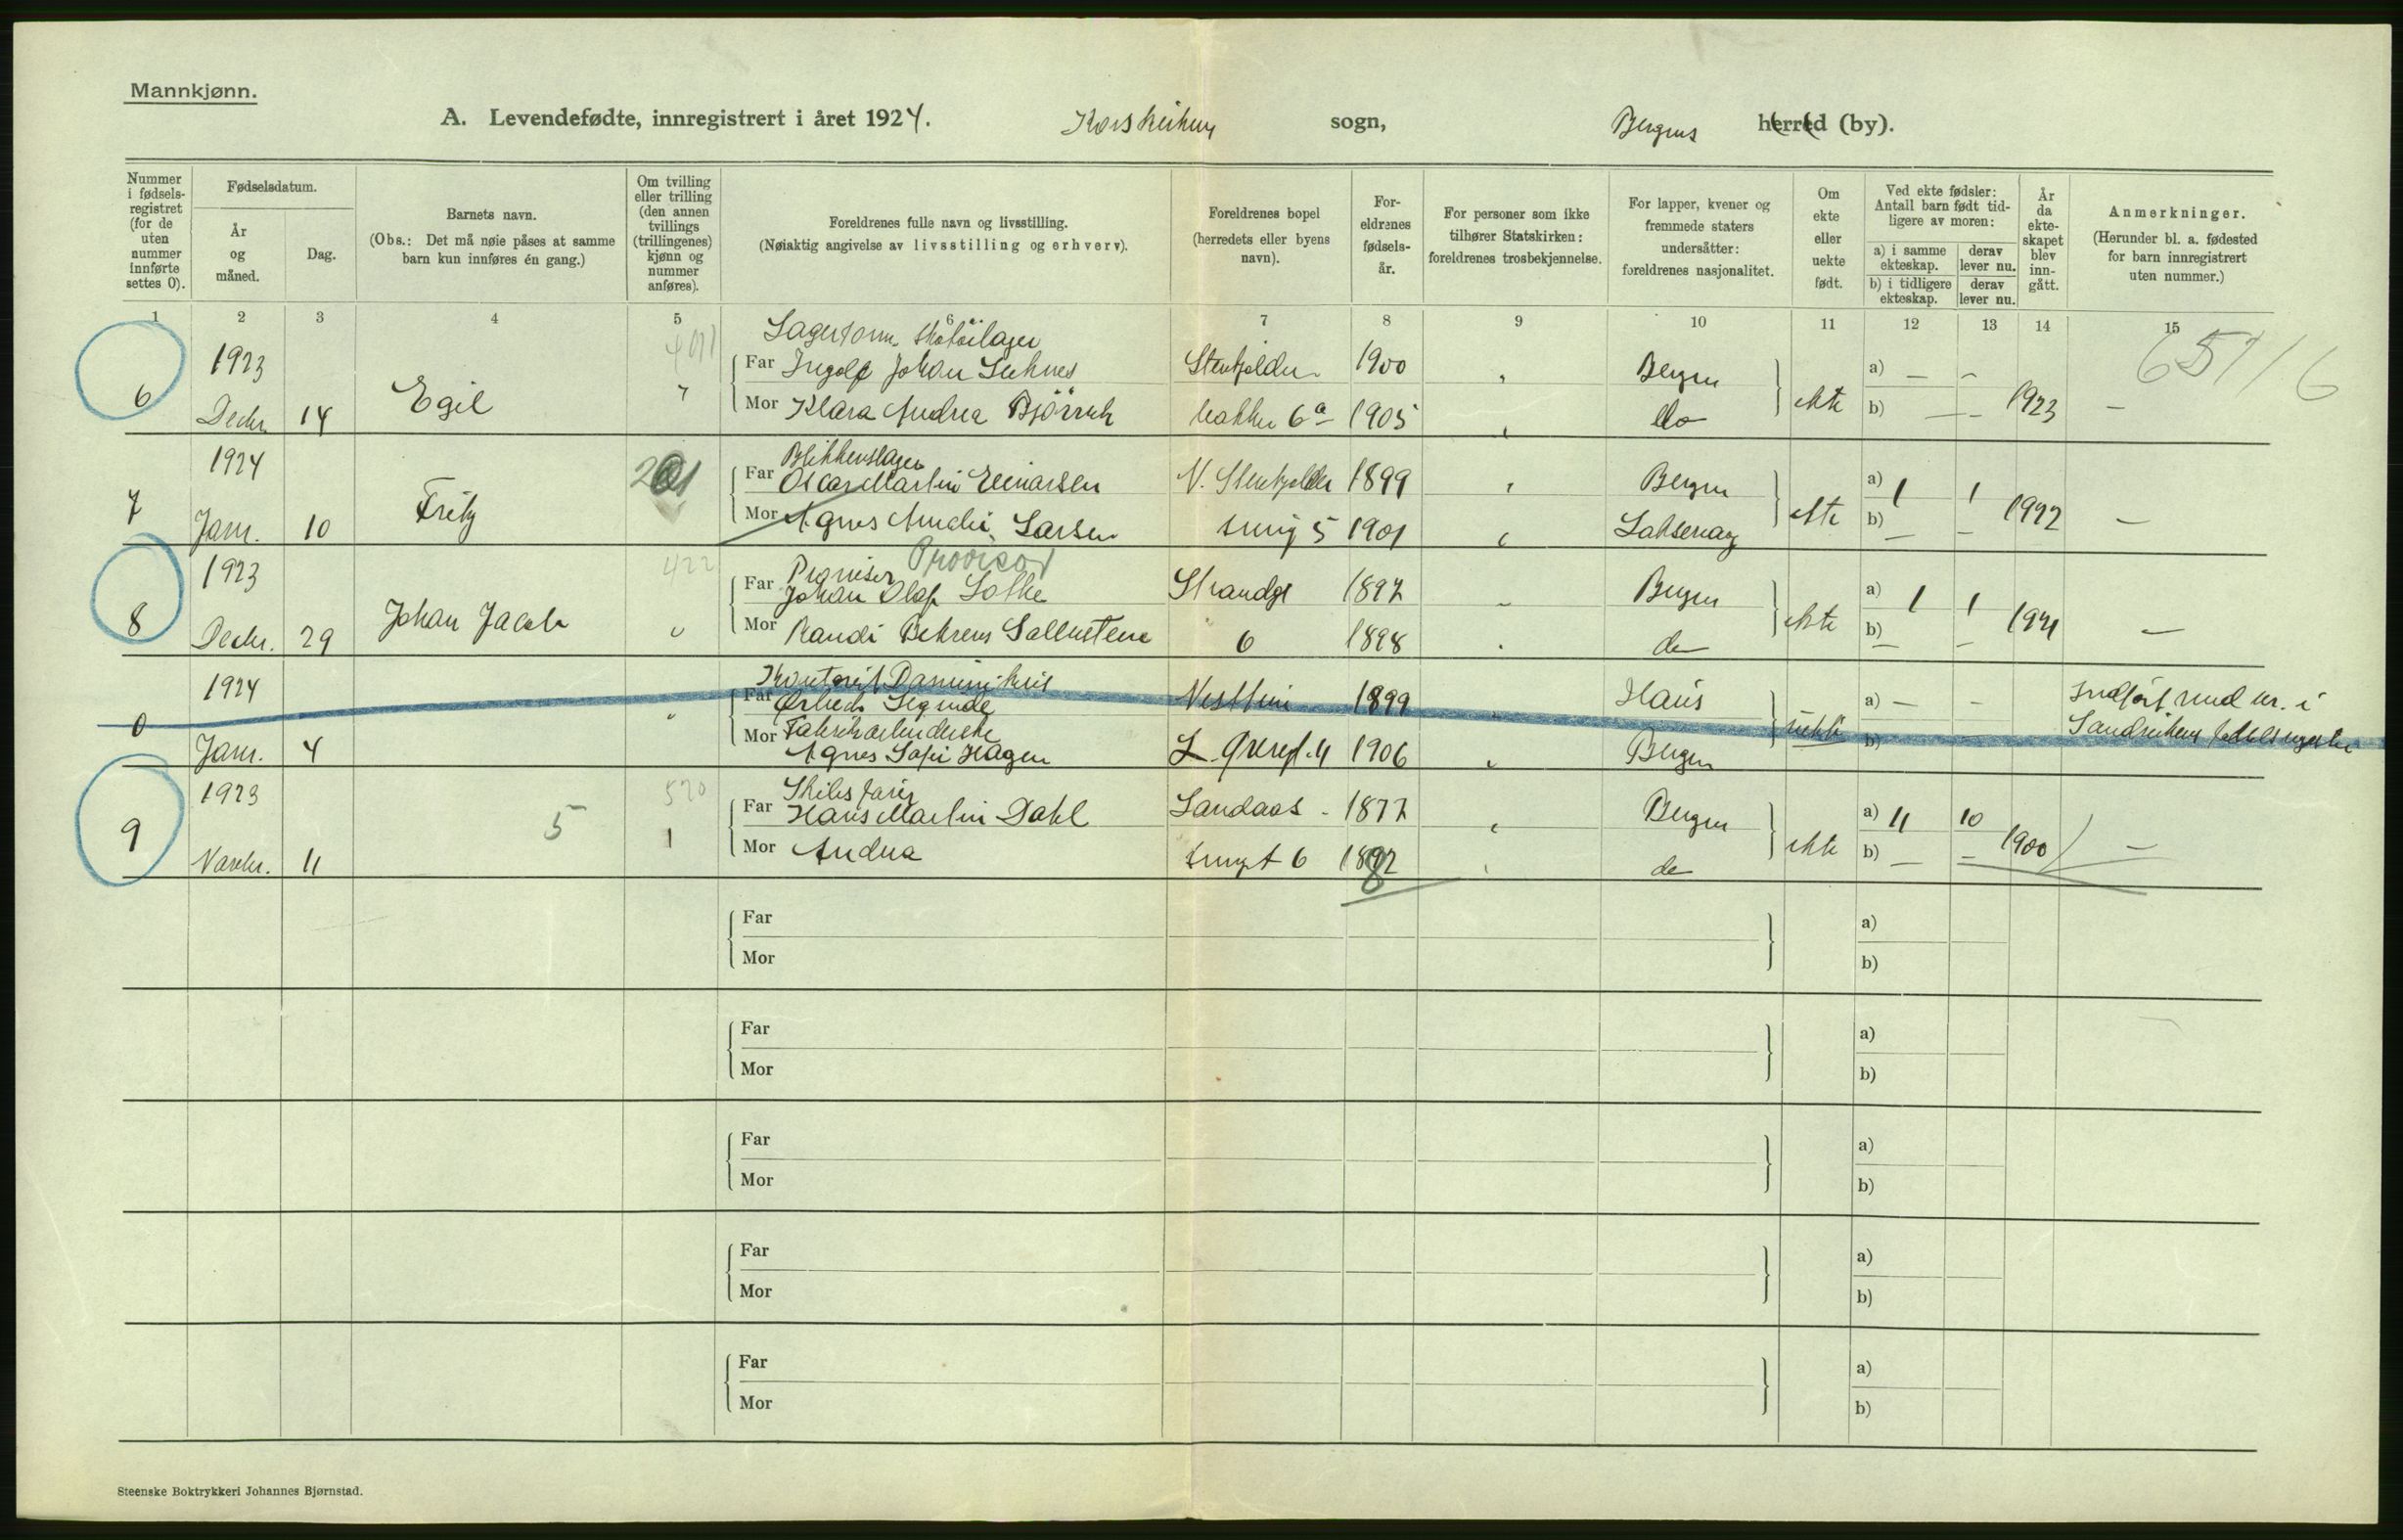 Mannkjønn.
A. Levendefødte, innregistrert i året 1924. Korskirken sogn, Bergens herred (by).
Nummer i fødsels-registret (for de uten nummer innførte settes 0).
Fødselsdatum.
År og måned.
Dag.
Barnets navn.
(Obs.: Det må nøie påses at samme barn kun innføres én gang.)
Om tvilling eller trilling (den annen tvillings (trillingenes) kjønn og nummer anføres).
Foreldrenes fulle navn og livsstilling.
(Nøiaktig angivelse av livsstilling og erhverv).
Foreldrenes bopel (herredets eller byens navn).
For-eldrenes fødsels-år.
For personer som ikke tilhører Statskirken: foreldrenes trosbekjennelse.
For lapper, kvener og fremmede staters undersåtter: foreldrenes nasjonalitet.
Om ekte eller uekte født.
Ved ekte fødsler: Antall barn født tid-ligere av moren:
a) i samme ekteskap.
derav lever nu.
b) i tidligere ekteskap.
derav lever nu.
År da ekte-skapet blev inn-gått.
Anmerkninger.
(Herunder bl. a. fødested for barn innregistrert uten nummer.)
1 2 3 4 5 6 7 8 9 10 11 12 13 14 15
651/6
1923 Lagerform. Skotøilager
Far Ingolf Johan 1900 Bergen a) — —
6 Decbr. 14 Egil Mor Klara Andrea bakken 6a 1905 do ekte b) — — 1923 —
1924 201 Blikkenslager
Far Oscar Martin Einarsen N. Stenkjelder 1899 Bergen a) 1 1
7 Janr. 10 Fritz Mor Agnes Amalie Larsen smug 5 1901 Laksevaag ekte b) — — 1922 —
1923 422 Proviser Provisor
Far Johan Olaf Strandgt 1897 Bergen a) 1 1
8 Decbr. 29 Johan Jacob Mor Randi Behrens 6 1898 do ekte b) — — 1921 —
1924 Kontorist
Far 1899 Haus a) — —
0 Janr. 4 Fabrikarbeiderske
Mor Agnes Sofie Hagen 1906 Bergen uekte b) — Indført med nr. i
Sandvikens fødselsregister
1923 5 520 Skibsfører
Far Hans Martin Dahl Landaas 1877 Bergen a) 11 10
9 Novbr. 11 1 Mor Andrea smugt 6 1882 do ekte b) — — 1900 —
Far a)
Mor b)
Far a)
Mor b)
Far a)
Mor b)
Far a)
Mor b)
Far a)
Mor b)
Steenske Boktrykkeri Johannes Bjørnstad.